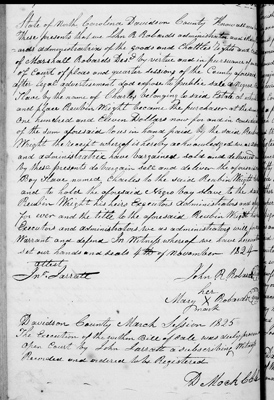 State of North Carolina Davidson County Know all men
These presents that we John R Robards administrator and
administratrix of the goods and Chattles rights and
of Marshall Robards Decd by virtue and in pursuance
of Court of pleas and quarter sessions of the County aforesaid
after legal advertisement did expose to public sale a Negro
Slave by the name of Charles belonging to said Estate at
and place Reubin Wight became the purchaser at the
One hundred and Eleven Dollars now for and in
of the sum aforesaid to us in hand paid by the said Reubin
Wight the receipt whereof is hereby acknowledged we as
and administratrix have bargained sold and delivered
by these presents do bargain sell and deliver the aforesaid
Boy Slave named Charles to the said Reubin Wight
and to hold the aforesaid Negro boy slave to the said
Reubin Wight his heirs Executors Administrators and
for ever and the title to the aforesaid Reubin Wight
Executors and administrators we as administrators will
Warrant and defend In Witness whereof we have hereunto
set our hands and seals 4th of November 1824
attest
Jno Jarratt
John R Robards
her
Mary X Robards
mark
Davidson County March Session 1825
The Execution of the within Bill of Sale was duly proven
Open Court by John Jarratt a subscribing Witness
Recorded and ordered to be Registered
D Mock